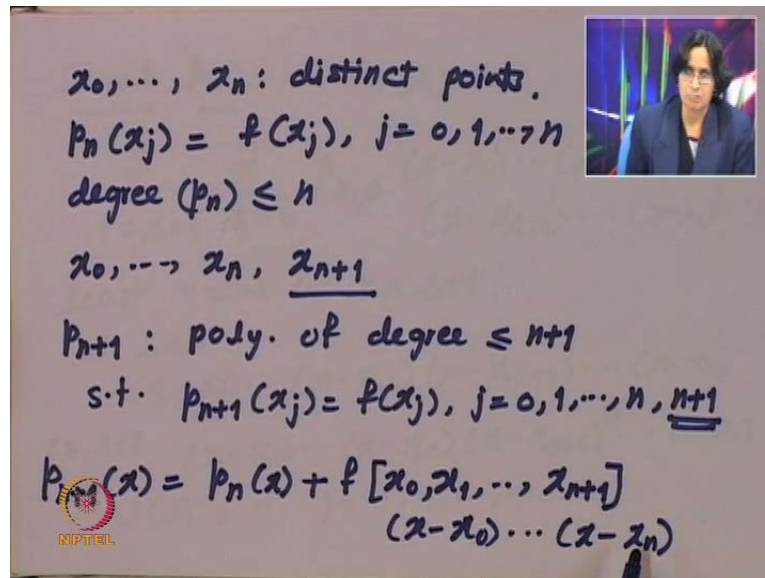 x₀,..., xₙ : distinct points.
pₙ(xⱼ) = f(xⱼ), j = 0,1,..,n
degree (pₙ) ≤ n
x₀,...., xₙ, xₙ₊₁
pₙ₊₁ : poly. of degree ≤ n+1
s.t. pₙ₊₁(xⱼ) = f(xⱼ), j = 0,1,..., n, n+1
pₙ₊₁(x) = pₙ(x) + f[x₀,x₁,.., xₙ₊₁]
(x-x₀)...(x-xₙ)
NPTEL